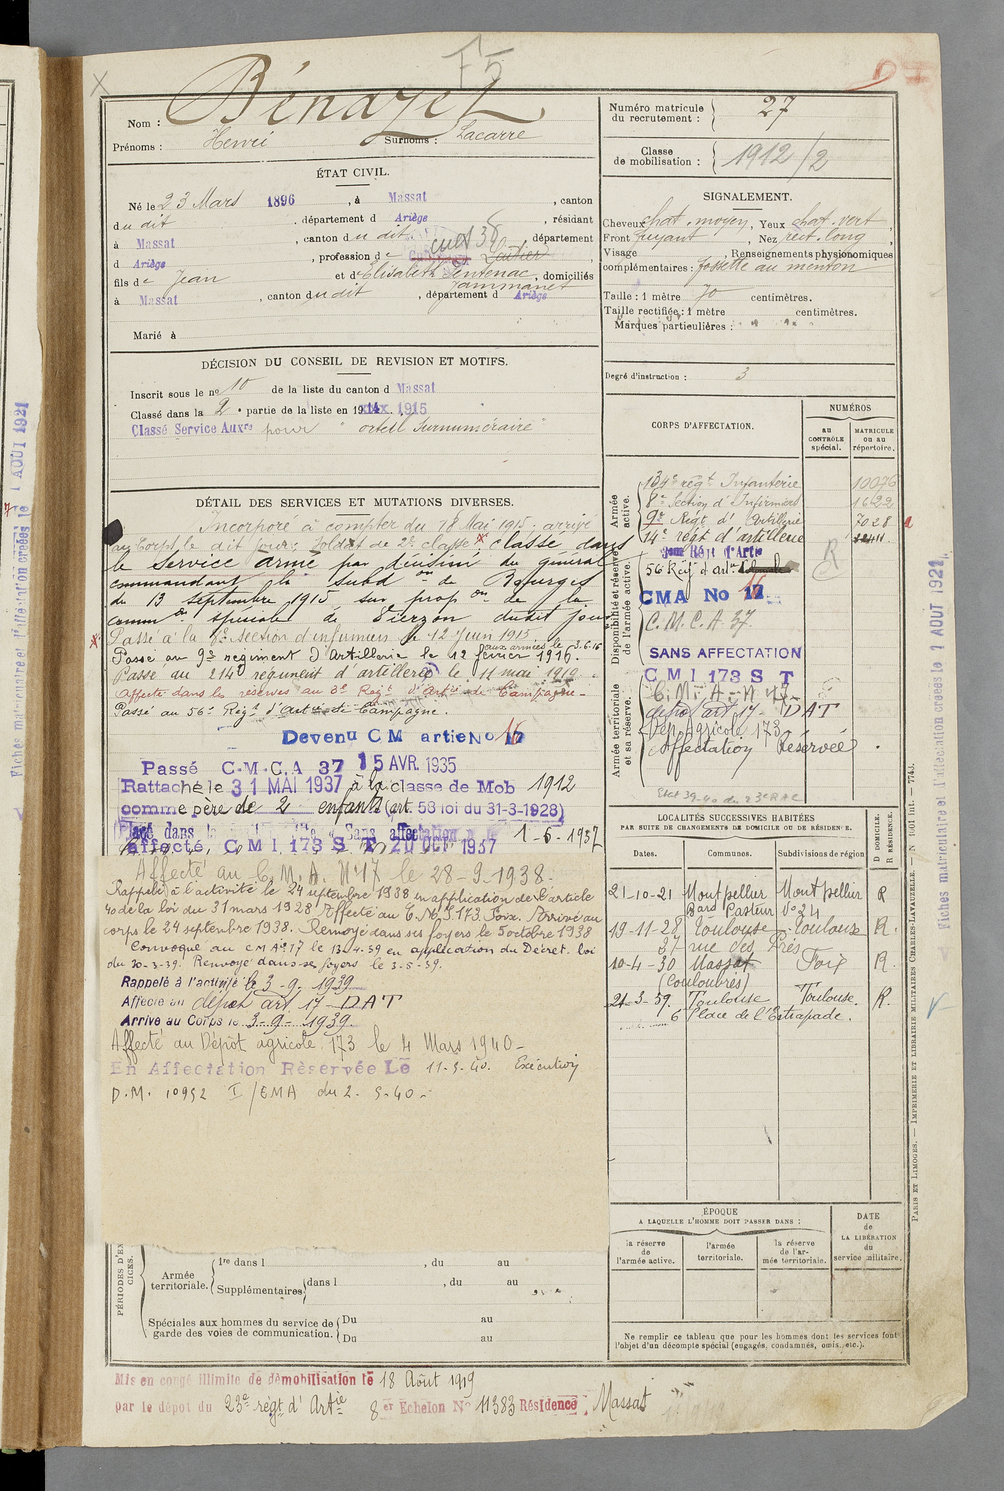 F5
Nom : Bénazet
Prénoms : Henri Surnoms : Lacarre
Numéro matricule du recrutement : 27
Classe de mobilisation : 1912/2
ÉTAT CIVIL.
Né le 23 Mars 1896, à Massat, canton
du dit, département d Ariège, résidant
à Massat, canton du dit, département
d Ariège, profession de
fils de Jean et d'Elisabeth Sentenac Jammanet, domiciliés
à Massat, canton du dit, département d Ariège
Marié à
SIGNALEMENT.
Cheveux chat. moyen, Yeux chat. vert
Front fuyant, Nez rect. long
Visage , Renseignements physionomiques
complémentaires : fossette au menton
Taille : 1 mètre 70 centimètres.
Taille rectifiée : 1 mètre centimètres.
Marques particulières :
Degré d'instruction : 3
DÉCISION DU CONSEIL DE REVISION ET MOTIFS.
Inscrit sous le n° 10 de la liste du canton d Massat
Classé dans la 2e partie de la liste en 1915
Classé Service Auxre pour "orteil surnuméraire"
CORPS D'AFFECTATION.
NUMÉROS
AU CONTRÔLE spécial.
MATRICULE ou au répertoire.
Armée active.
134e régt Infanterie 10076
8e Section d'Infirmiers 1622
9e Régt d'Artillerie 7028
14e régt d'artillerie
Disponibilité et réserve de l'armée active.
56 Régt d'art
CMA No 17
C.M.C.A 37.
SANS AFFECTATION
C M I 173 S T
Armée territoriale et sa réserve.
C.M.A. N 17
dépôt art 17 - DAT
Dép. Agricole 173
Affectation Réservée
Etat 39-40 du 23e RAC
DÉTAIL DES SERVICES ET MUTATIONS DIVERSES.
Incorporé à compter du 18 Mai 1915. arrivé
au Corps le dit jour. Soldat de 2e classe. classé dans
le service armé par décision du général
commandant la subdon de Bourges
du 13 septembre 1915 sur propon de la
common spéciale de Vierzon dudit jour
Passé à la 8e section d'infirmiers le 12 Juin 1915.
Passé au 9e régiment d'Artillerie le 12 février 1916. aux armées le 3.6.16
Passé au 214e régiment d'artillerie le 11 mai 1919.
Affecté dans les réserves au 3e Régt d'Artie de Campagne.
Passé au 56e Régt d'Artie de Campagne.
Devenu CM artie No 16
Passé C.M.C.A 37 15 AVR. 1935
Rattaché le 31 MAI 1937 à la classe de Mob 1912
comme père de 2 enfants (art. 58 loi du 31-3-1928)
1-6-1937
affecté, C M I 173 S T 20 OCT 1937
Affecté au C.M.A. N°17 le 28-9-1938.
Rappelé à l'activité le 24 septembre 1938 en application de l'article
40 de la loi du 31 mars 1928. Affecté au C.M.I 173 Foix. Arrivé au
corps le 24 septembre 1938. Renvoyé dans ses foyers le 5 octobre 1938
Convoqué au CMA 17 le 13-4-39 en application du Décret. loi
du 20-3-39. Renvoyé dans se foyers le 3-5-39.
Rappelé à l'activité le 3-9-1939
Affecté au dépôt art 17 - DAT
Arrivé au Corps le 3-9-1939.
Affecté au Dépôt agricole 173 le 4 Mars 1940-
En Affectation Réservée Le 11-5-40. Exécution
D.M. 10952 I/EMA du 2-5-40-
LOCALITÉS SUCCESSIVES HABITÉES
PAR SUITE DE CHANGEMENTS DE DOMICILE OU DE RÉSIDENCE.
Dates. Communes. Subdivisions de région
D DOMICILE. R RÉSIDENCE.
21-10-21 Montpellier Montpellier R
Bard Pasteur N°24
19-11-28 Toulouse Toulouse R.
37 rue des Prés
10-4-30 Massat Foix R.
(Couloubrès)
21-3-39. Toulouse Toulouse. R.
6 Place de l'Estrapade.
ÉPOQUE
A LAQUELLE L'HOMME DOIT PASSER DANS :
la réserve de l'armée active.
l'armée territoriale.
la réserve de l'armée territoriale.
DATE de LA LIBÉRATION du service militaire.
Ne remplir ce tableau que pour les hommes dont les services font
l'objet d'un décompte spécial (engagés, condamnés, omis, etc.).
PÉRIODES D'EX CICES.
Armée territoriale.
1re dans l , du au
Supplémentaires dans l , du au
Spéciales aux hommes du service de garde des voies de communication.
Du au
Du au
Mis en congé illimité de démobilisation le 18 Août 1919
par le dépôt du 23e régt d'Artie 8er Echelon N° 11383 Résidence Massat
PARIS ET LIMOGES. — IMPRIMERIE ET LIBRAIRIE MILITAIRES CHARLES-LAVAUZELLE. — N° 1001 int. — 7743.
Fiches matriculaire et d'affectation créées le 1 AOUT 1921
Fiches matriculaire et d'affectation créées le 1 AOUT 1921